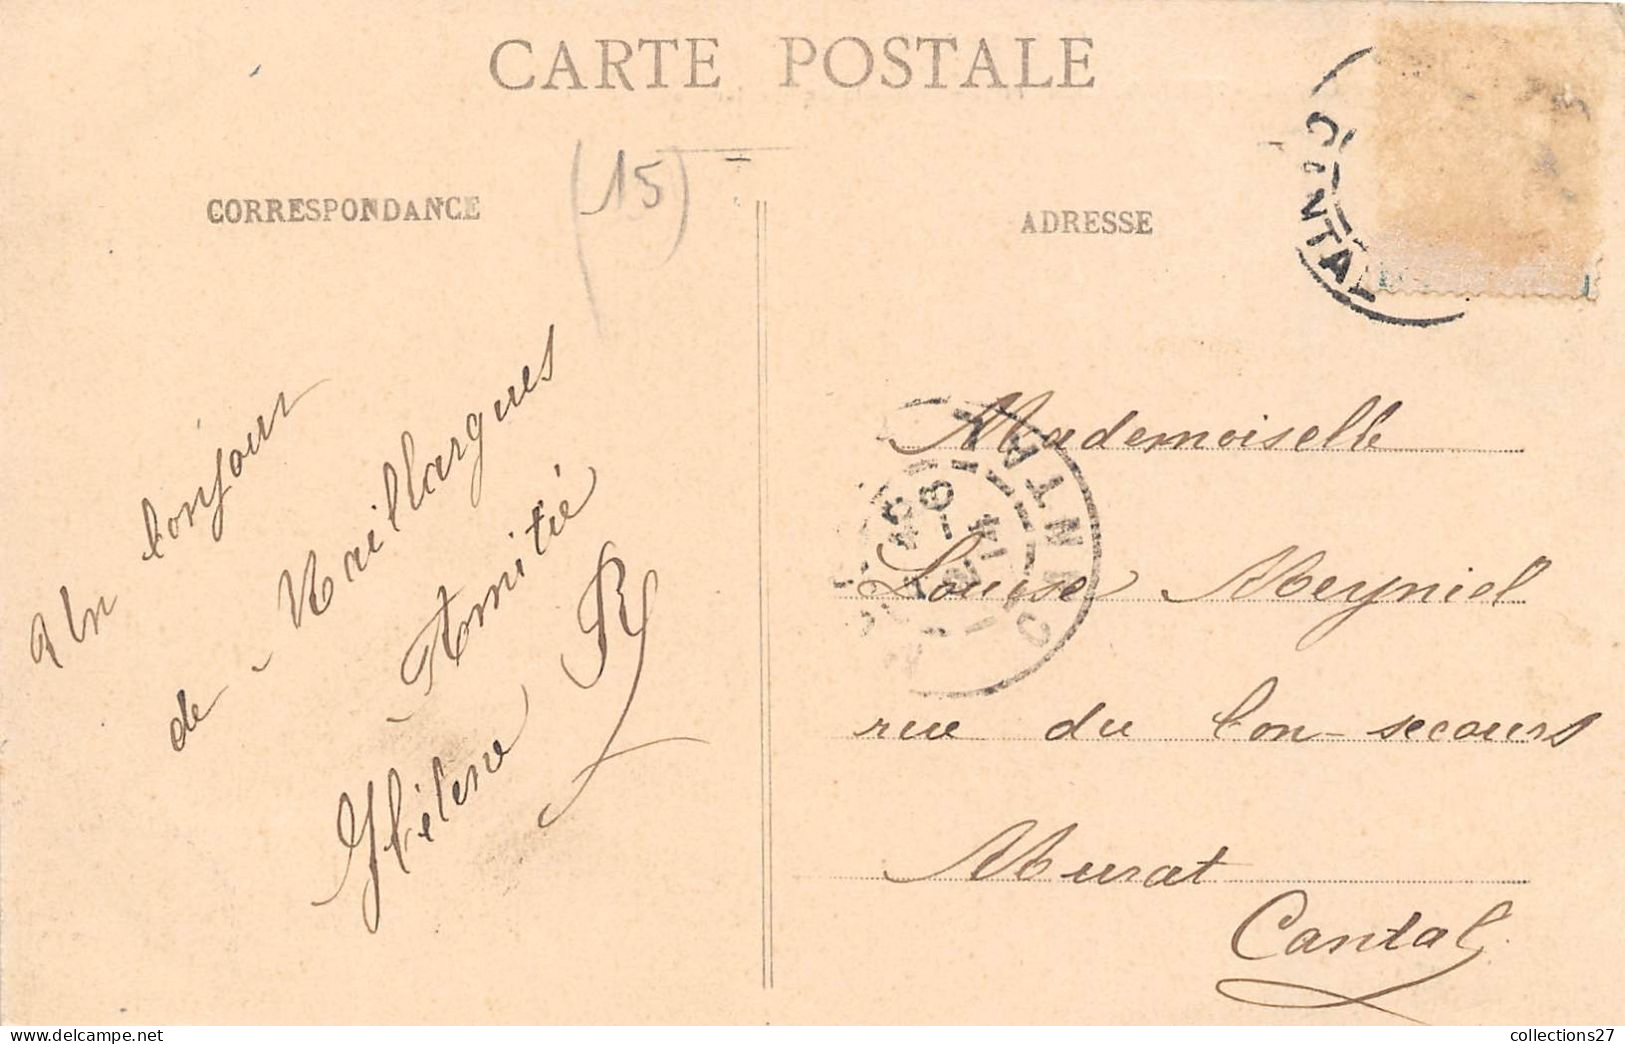 CARTE POSTALE
(15)
CORRESPONDANCE
ADRESSE
CANTAL
Un bonjour
de Maillargues
Amitié
Hélène R
CANTAL
Mademoiselle
Louise Meyniel
rue du bon-secours
Murat
Cantal
collections27
www.delcampe.net